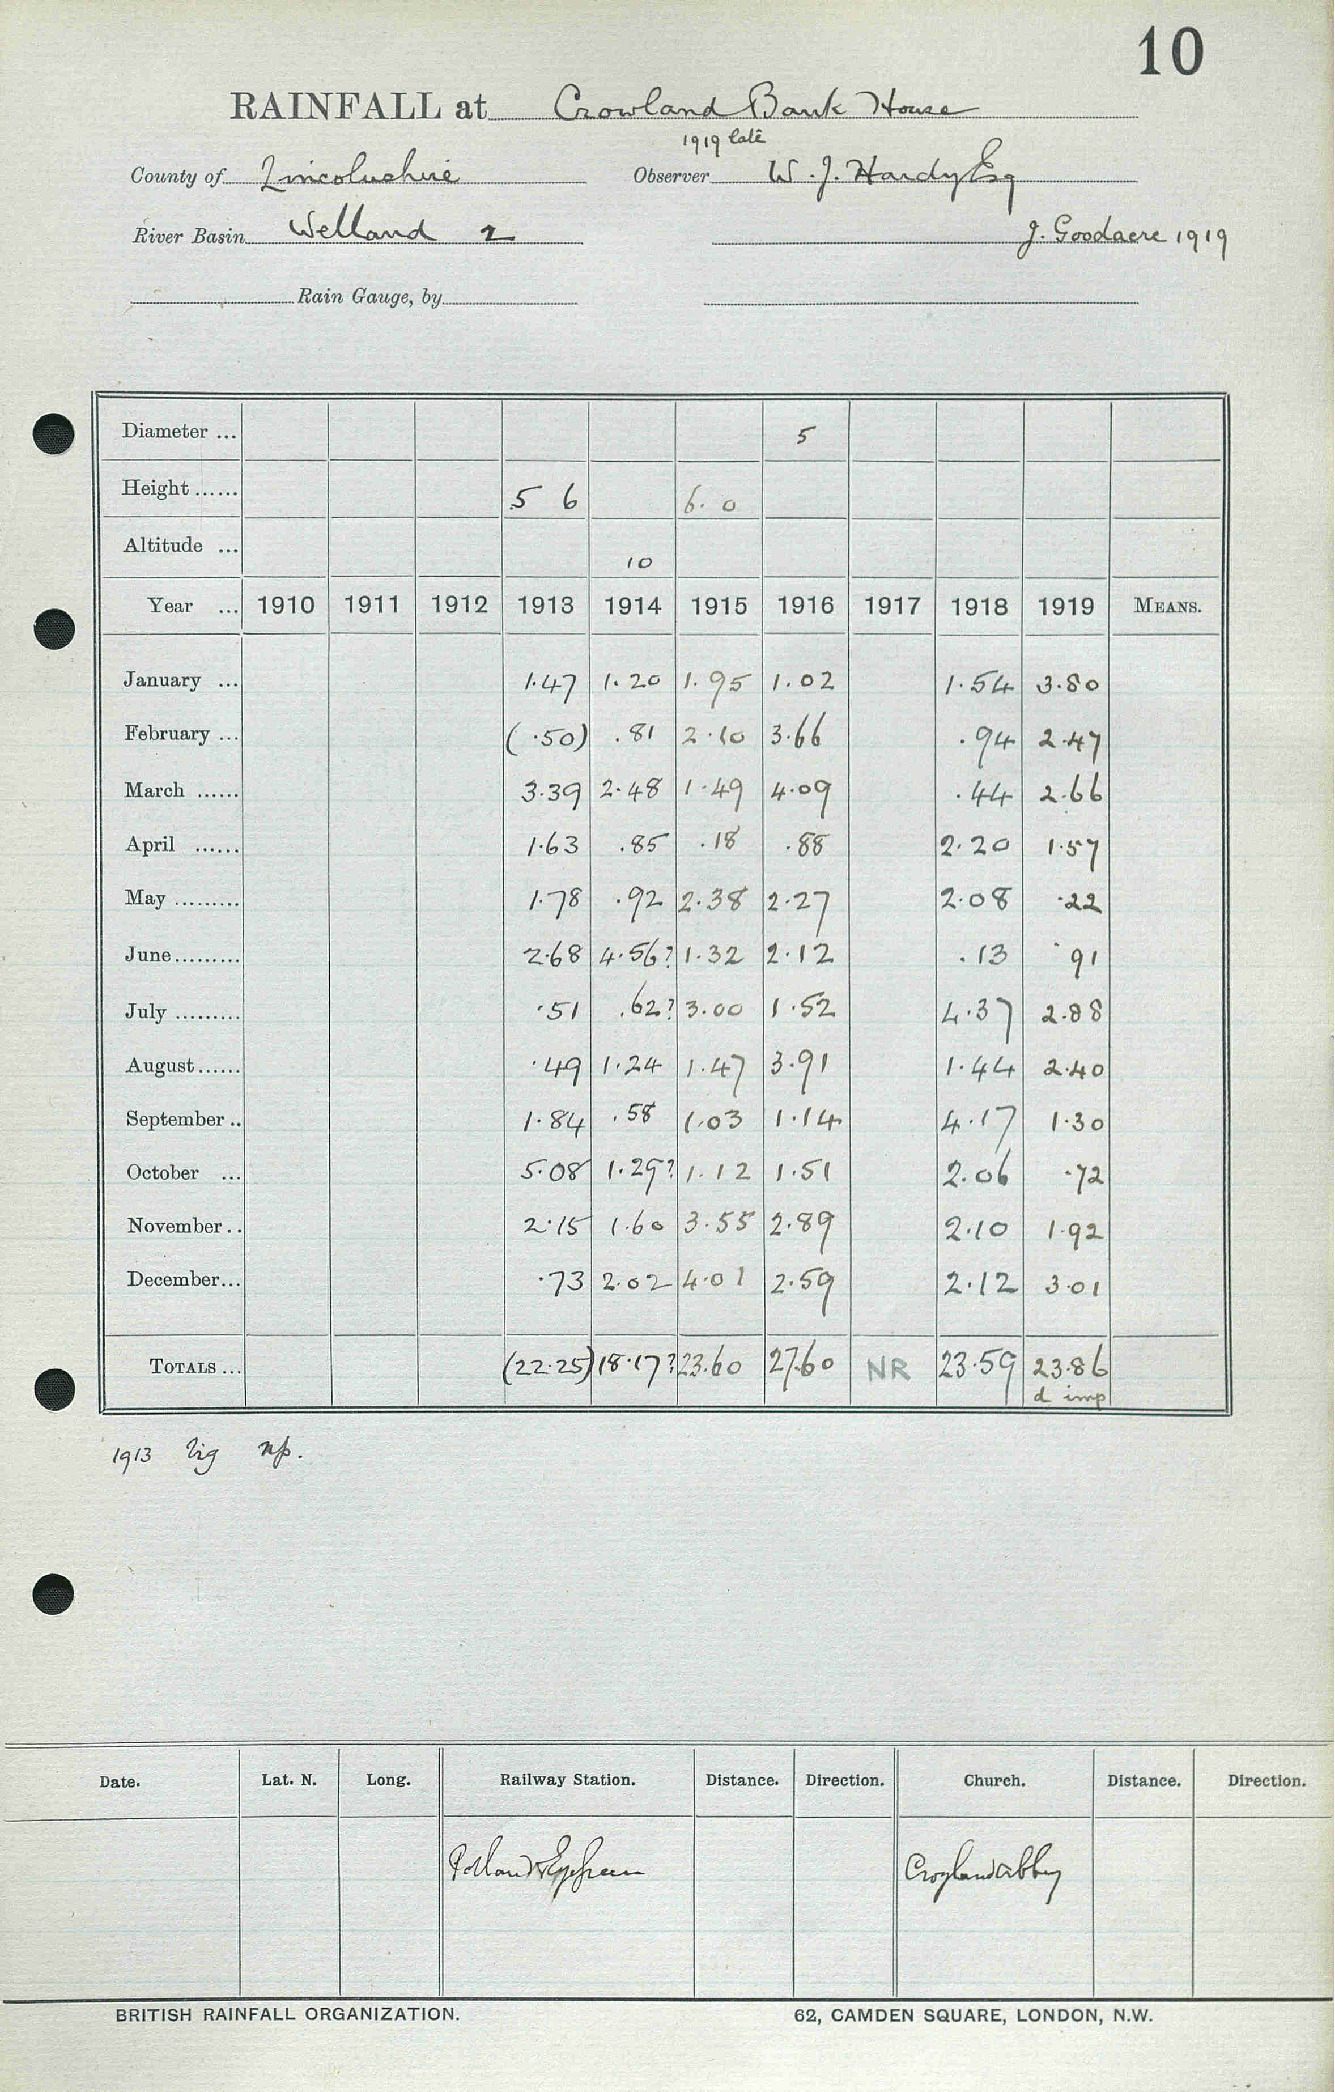 10
RAINFALL at Crowland Bank House
1919 late
County of Lincolnshire Observer W. J. Hardy Esq
River Basin Welland 2 J. Goodacre 1919
Rain Gauge, by
Diameter ... 5
Height ...... 5 6 6. 0
Altitude ... 10
Year ... 1910 1911 1912 1913 1914 1915 1916 1917 1918 1919 MEANS.
January ... 1.47 1.20 1.95 1.02 1.54 3.80
February ... (.50) .81 2.10 3.66 .94 2.47
March ...... 3.39 2.48 1.49 4.09 .44 2.66
April ...... 1.63 .85 .18 .88 2.20 1.57
May ......... 1.78 .92 2.38 2.27 2.08 .22
June ......... 2.68 4.56? 1.32 2.12 .13 .91
July ......... .51 .62? 3.00 1.52 4.37 2.88
August ...... .49 1.24 1.47 3.91 1.44 2.40
September .. 1.84 .58 1.03 1.14 4.17 1.30
October ... 5.08 1.29? 1.12 1.51 2.06 .72
November .. 2.15 1.60 3.55 2.89 2.10 1.92
December ... .73 2.02 4.01 2.59 2.12 3.01
TOTALS ... (22.25) 18.17? 23.60 27.60 NR 23.59 23.86
d imp
1913 np.
Date. Lat. N. Long. Railway Station. Distance. Direction. Church. Distance. Direction.
Croyland Abbey
BRITISH RAINFALL ORGANIZATION. 62, CAMDEN SQUARE, LONDON, N.W.